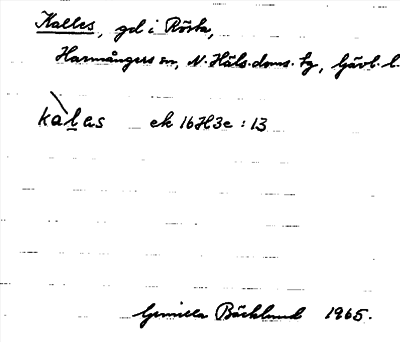 Kalles, gd i Rösta,
Harmångers sn, N. Häls. doms. tg, Gävl. l.
kalas ek 16H3e : 13
Gunilla Bäcklund 1965.